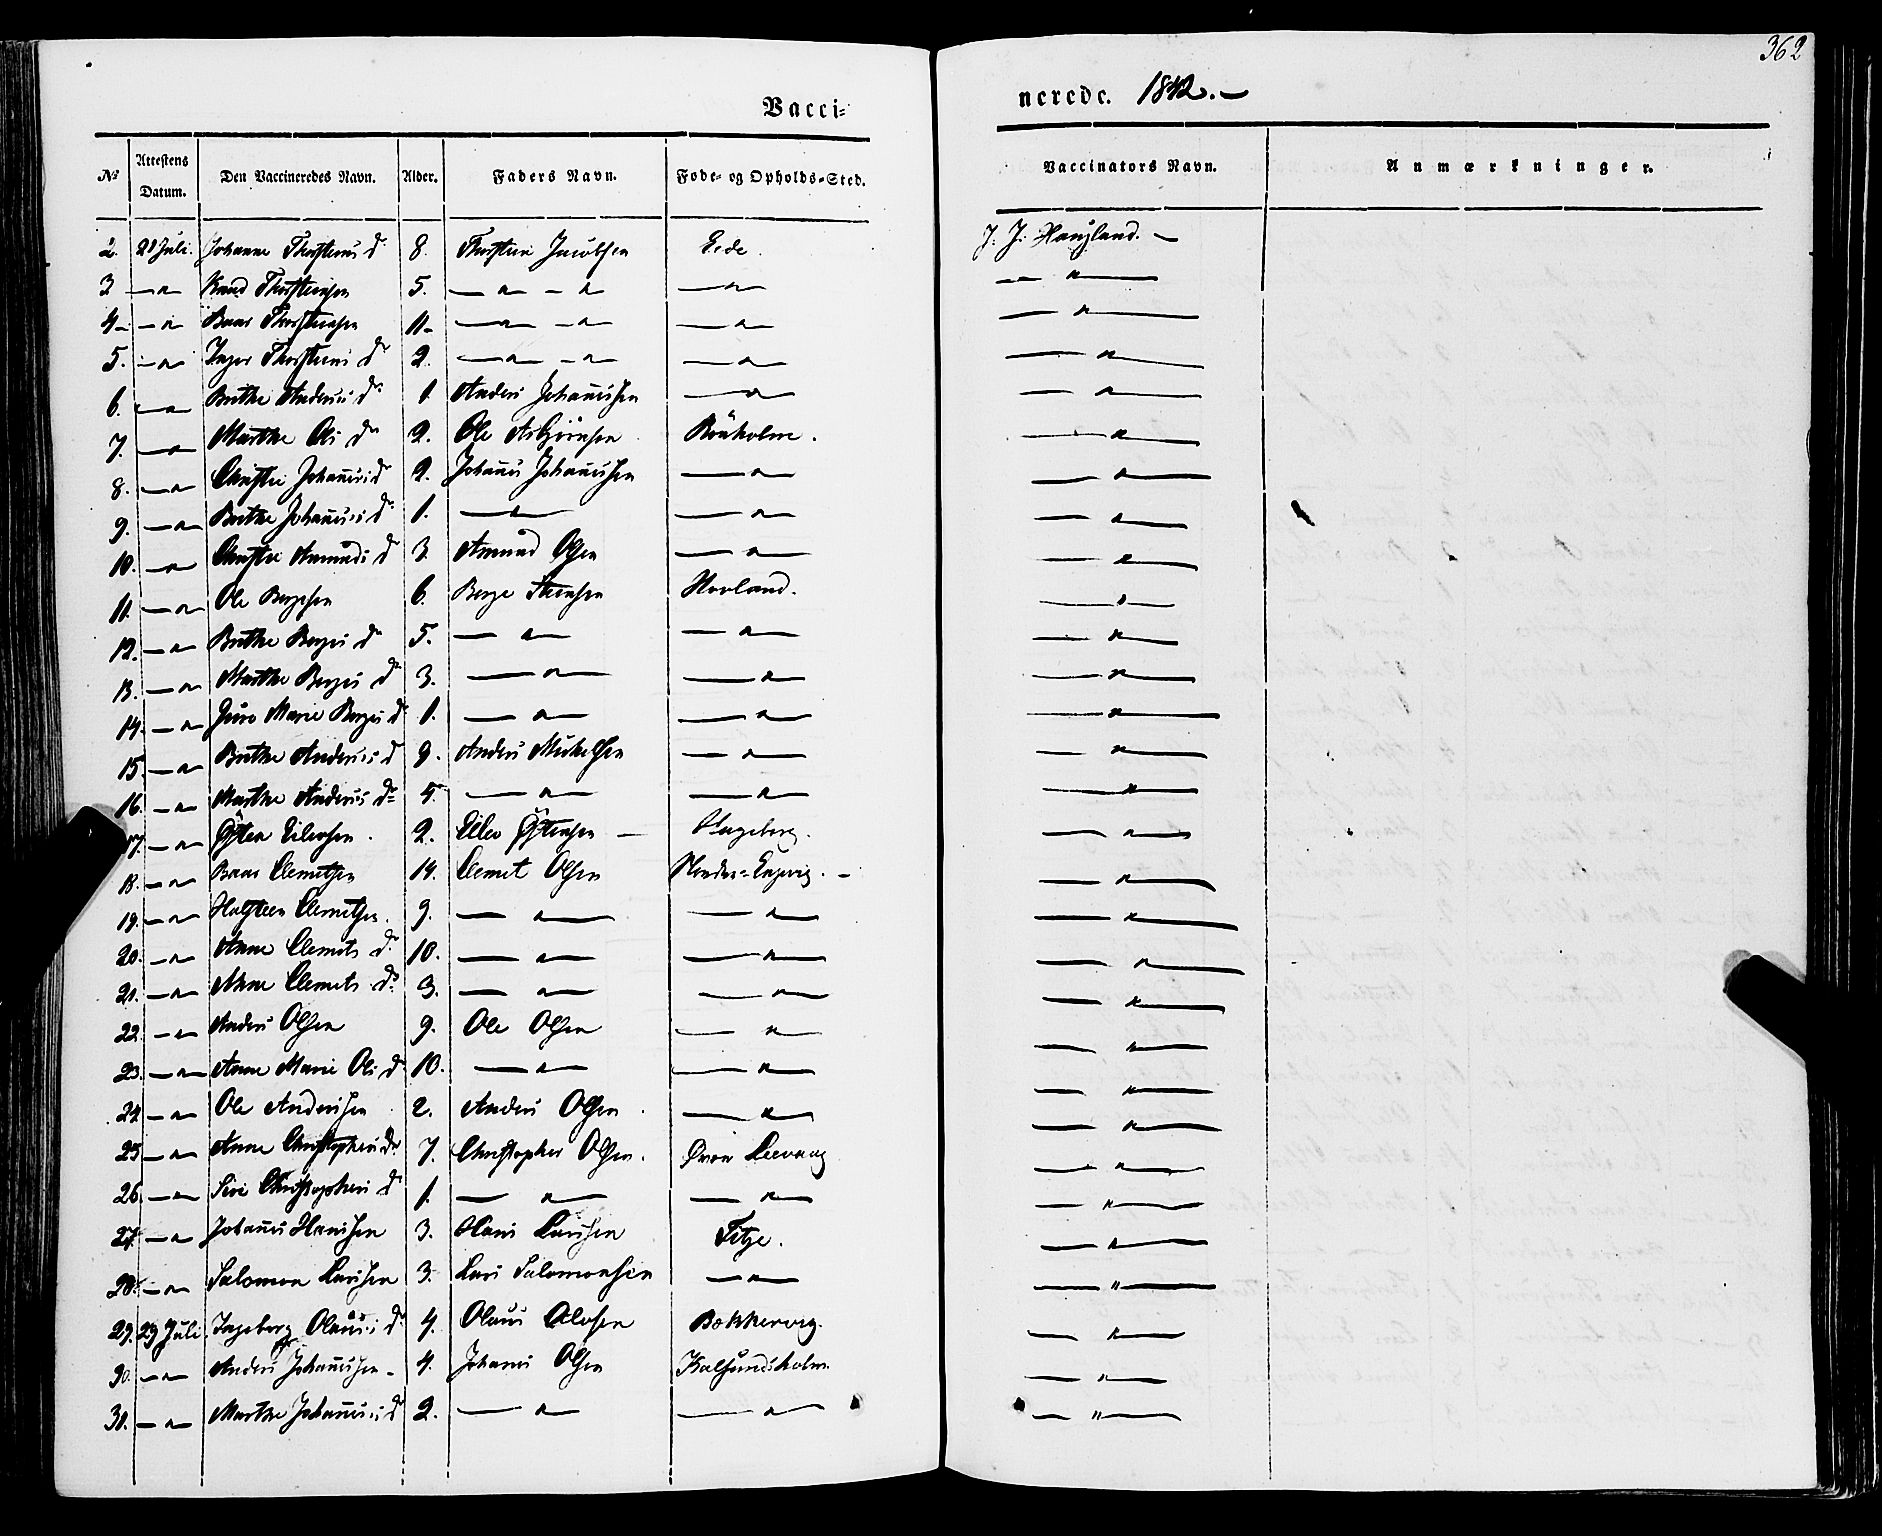 362
Vacci-
nerede. 1842. —
No | Attestens Datum. | Den Vaccineredes Navn. | Alder. | Faders Navn. | Føde- og Opholds-Sted. | Vaccinators Navn. | Anmærkninger.
2. | 21 Juli. | Johanne Thorsteins dr | 8. | Thorstein Jacobsen | Eide. | J. J. Haugland. —
3 | — " | Knud Thorsteinsen | 5. | — " — " | — " | — " —
4 — | — " | Baar Thorsteinsen | 11 — | — " — " | — " | — " —
5. | — " | Inger Thorsteins dr | 2. | — " — " | — " | — " —
6. | — " | Brithe Anders dr | 1. | Anders Johannesen | — " | — " —
7. | — " | Marthe Ols dr | 2. | Ole Asbjørnsen | Rønholm. | — " —
8. | — " | Christie Johannis dr | 2. | Johannis Johannesen | — " | — " —
9. | — " | Brithe Johannis dr | 1. | — " — | — " | — " —
10. | — " | Christie Amunds dr | 3. | Amund Olsen | — " — | — " —
11. | — " | Ole Bergesen | 6. | Berge Steensen | Hovland. | — " —
12. | — " | Brithe Berges dr | 5. | — " — | — " — | — " —
13. | — " | Marthe Berges dr | 3. | — " — | — " — | — " —
14. | — " | Guro Marie Berges dr | 1. | — " — | — " — | — " —
15. | — " | Brithe Anders d | 9. | Anders Mickelsen | — " — | — " —
16. | — " | Marthe Anders dr | 5. | — " — | — " — | — " —
17. | — " | Østen Eilersen. | 2. | Eiler Østensen — | Hageberg. | — " —
18. | — " | Baar Clemetsen | 14. | Clemet Olsen | | — " —
19. | — " | Halsteen Clemetsen. | 9. | — " — | — " — | — " —
20. | — " | Anne Clemets dr | 10. | — " — | — " — | — " —
21. | — " | Anne Clemets dr | 3. | — " — | — " — | — " —
22. | — " | Anders Olsen | 9. | Ole Olsen | — " — | — " —
23. | — " | Anne Marie Ols dr | 10. | — " — | — " — | — " —
24 | — " | Ole Andersen | 2. | Anders Olsen | — " — | — " —
25 | — " | Anne Christophers dr | 7. | Christopher Olsen. | | — " —
26 | — " | Siri Christophers dr | 1. | — " — | — " — | — " —
27. | — " | Johannes Hansen | 3. | Hans Larsen | Fitje. | — " —
28. | — " | Salomon Larsen | 3. | Lars Salomonsen | — " — | — " —
29. | 29 Juli | Ingeborg Olaus dr | 4. | Olaus Olsen | Bekkervig. | — " —
30. | — " | Anders Johannesen — | 4. | Johannes Olsen | Kalsundsholm. | — " —
31. | — " | Marthe Johannis d | 2. | — " — | — " — | — " —